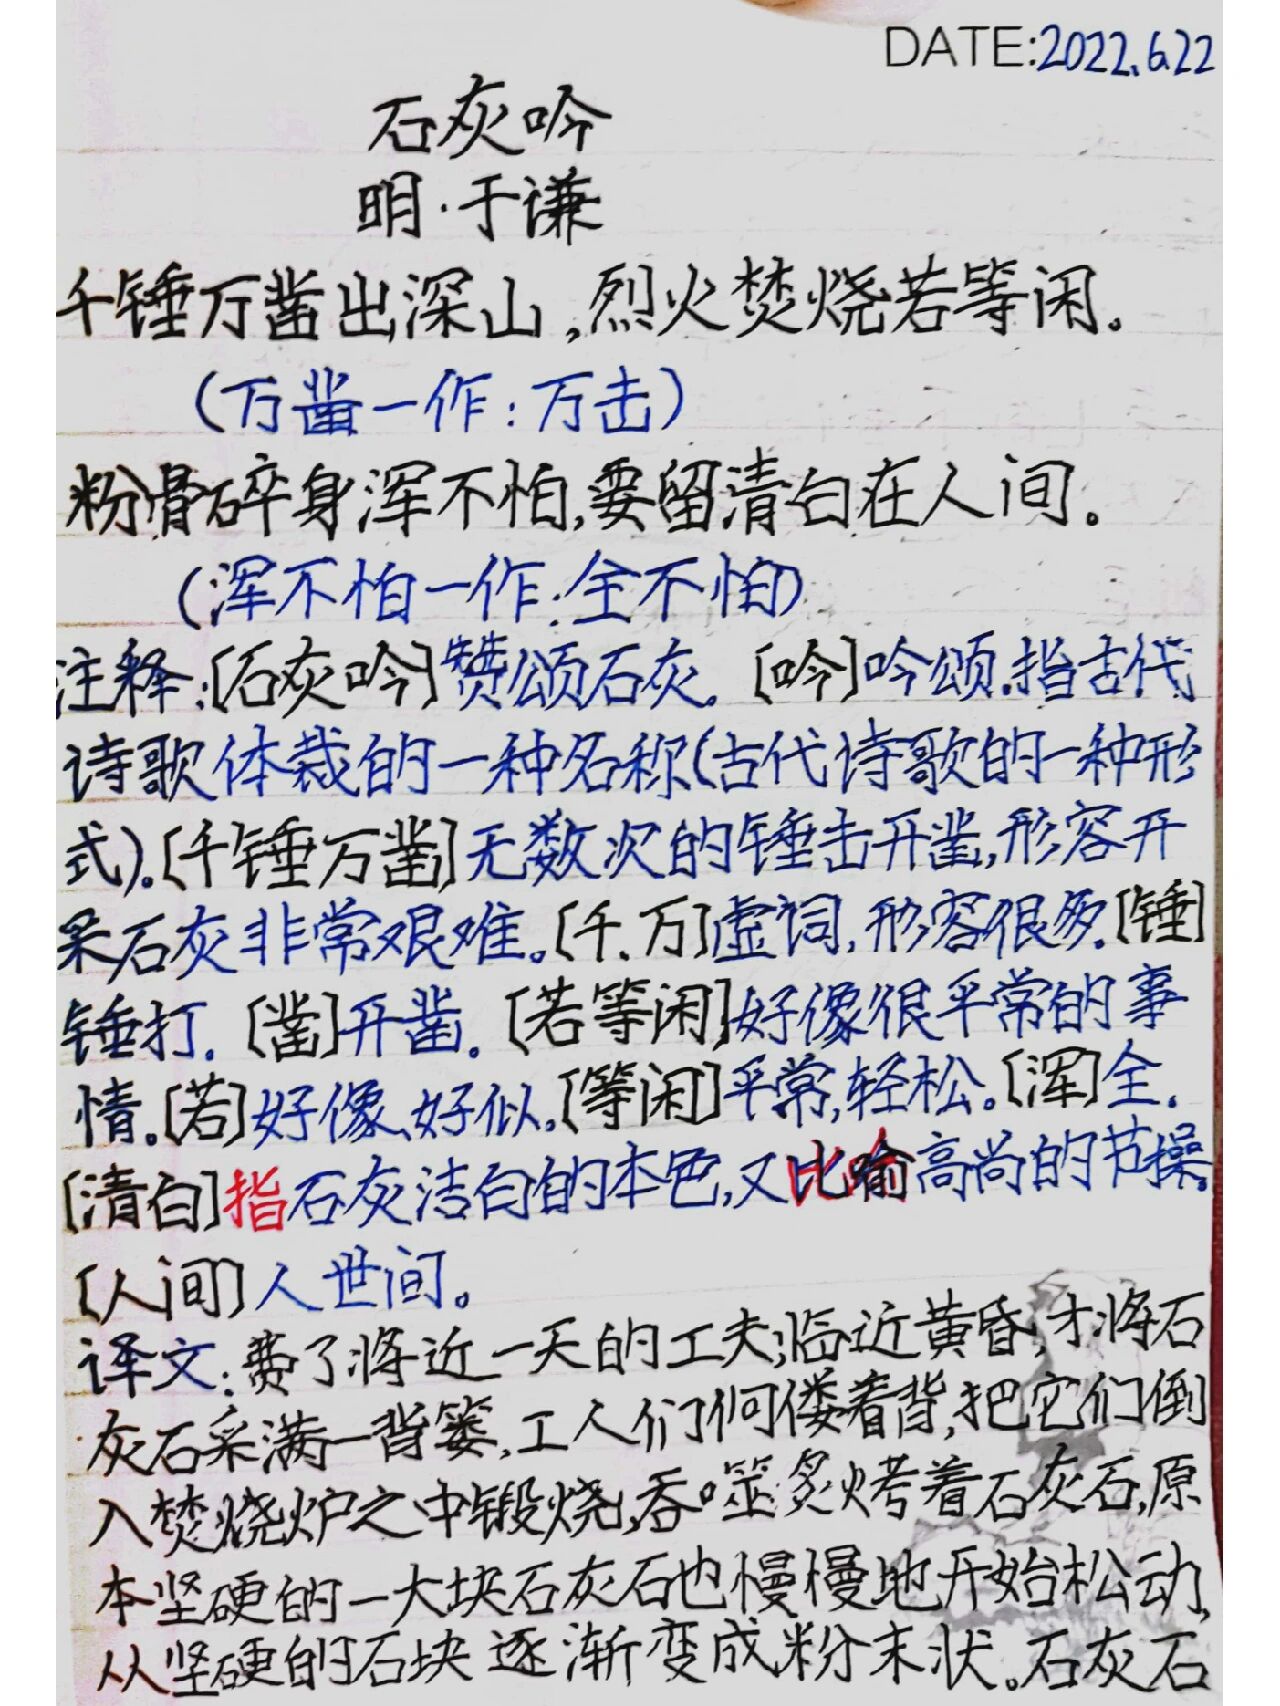 DATE:2022.6.22
石灰吟
明·于谦
千锤万凿出深山,烈火焚烧若等闲。
(万凿一作:万击)
粉骨碎身浑不怕,要留清白在人间。
(浑不怕一作:全不怕)
注释:[石灰吟]赞颂石灰。[吟]吟颂.指古代
诗歌体裁的一种名称(古代诗歌的一种形
式)。[千锤万凿]无数次的锤击开凿,形容开
采石灰非常艰难。[千.万]虚词,形容很多.[锤]
锤打.[凿]开凿。[若等闲]好像很平常的事
情。[若]好像、好似。[等闲]平常,轻松。[浑]全.
[清白]指石灰洁白的本色,又比喻高尚的节操.
[人间]人世间。
译文:费了将近一天的工夫;临近黄昏,才将石
灰石采满一背篓,工人们佝偻着背,把它们倒
入焚烧炉之中锻烧,吞噬炙烤着石灰石,原
本坚硬的一大块石灰石也慢慢地开始松动,
从坚硬的石块逐渐变成粉末状。石灰石